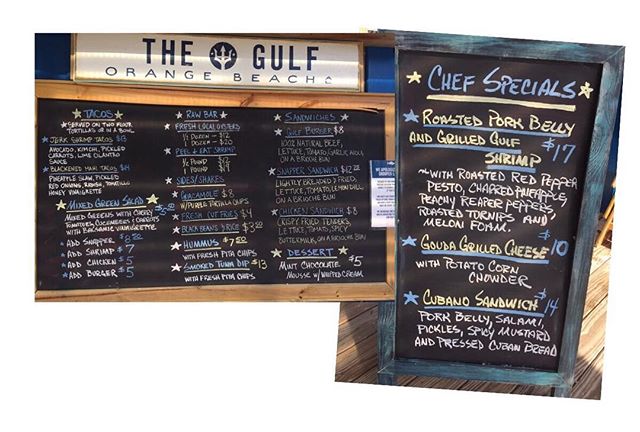 THE GULF
ORANGE BEACH
TACOS
SERVED ON TWO FLOUR
TORTILLAS OR IN A BOWL
JERK SHRIMP TACOS
AVOCADO, KIMCHI, PICKLED
CARROTS, LIME CILANTRO
SAUCE
BLACKENED MAHI TACOS
PINEAPPLE SLAW, PICKLED
RED ONIONS, TOMATILLO
HONEY VINAIGRETTE
MIXED GREEN SALAD
MIXED GREENS WITH CHERRY
TOMATOES, CUCUMBERS & CARROTS
WITH BALSAMIC VINAIGRETTE
ADD SNAPPER
ADD SHRIMP $7
ADD CHICKEN $5
ADD BURGER $5
RAW BAR
FRESH LOCAL OYSTERS
½ DOZEN - $12
1 DOZEN - $20
PEEL & EAT SHRIMP
½ POUND
1 POUND
SIDES/SHARES
GUACAMOLE $8
W/PURPLE TORTILLA CHIPS
FRESH CUT FRIES $4
BLACK BEANS & RICE $3.50
HUMMUS $7.50
WITH FRESH PITA CHIPS
SMOKED TUNA DIP $13
WITH FRESH PITA CHIPS
SANDWICHES
GULF BURGER $8
100% NATURAL BEEF,
LETTUCE, TOMATO, GARLIC AIOLI,
ON A BRIOCHE BUN
SNAPPER SANDWICH $12
LIGHTLY BREADED & FRIED,
LETTUCE, TOMATO, LEMON DILL,
ON A BRIOCHE BUN
CHICKEN SANDWICH $8
CRISPY FRIED TENDERS,
LETTUCE, TOMATO, SPICY
BUTTERMILK, ON A BRIOCHE BUN
DESSERT
MINT CHOCOLATE $5
MOUSSE W/WHIPPED CREAM
CHEF SPECIALS
ROASTED PORK BELLY
AND GRILLED GULF
SHRIMP $17
~WITH ROASTED RED PEPPER
PESTO, CHARRED PINEAPPLE,
PEACHY REAPER PEPPERS,
ROASTED TURNIPS AND
MELON FOAM.
GOUDA GRILLED CHEESE $10
WITH POTATO CORN
CHOWDER
CUBANO SANDWICH $14
PORK BELLY, SALAMI,
PICKLES, SPICY MUSTARD
AND PRESSED CUBAN BREAD